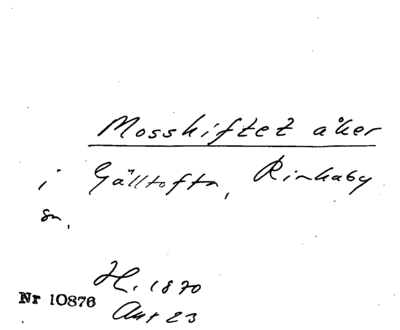 Mosskiftet åker
i Gälltofta, Rinkaby
sn.
H. 1870
Akt 23
Nr 10876